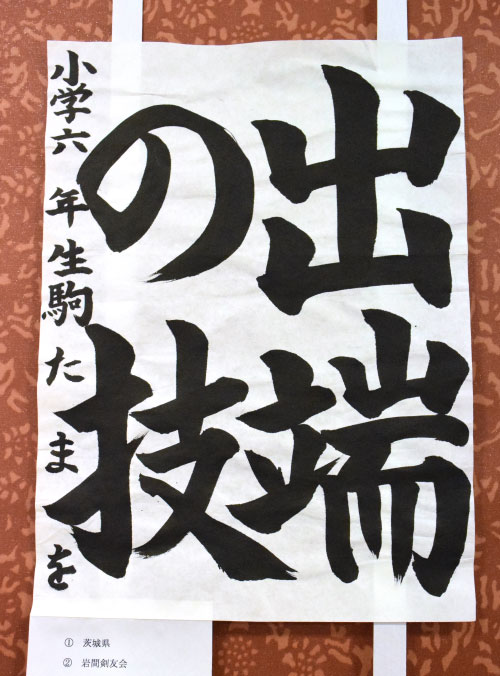 出端
の技
小学六年生駒たまを
① 茨城県
② 岩間剣友会